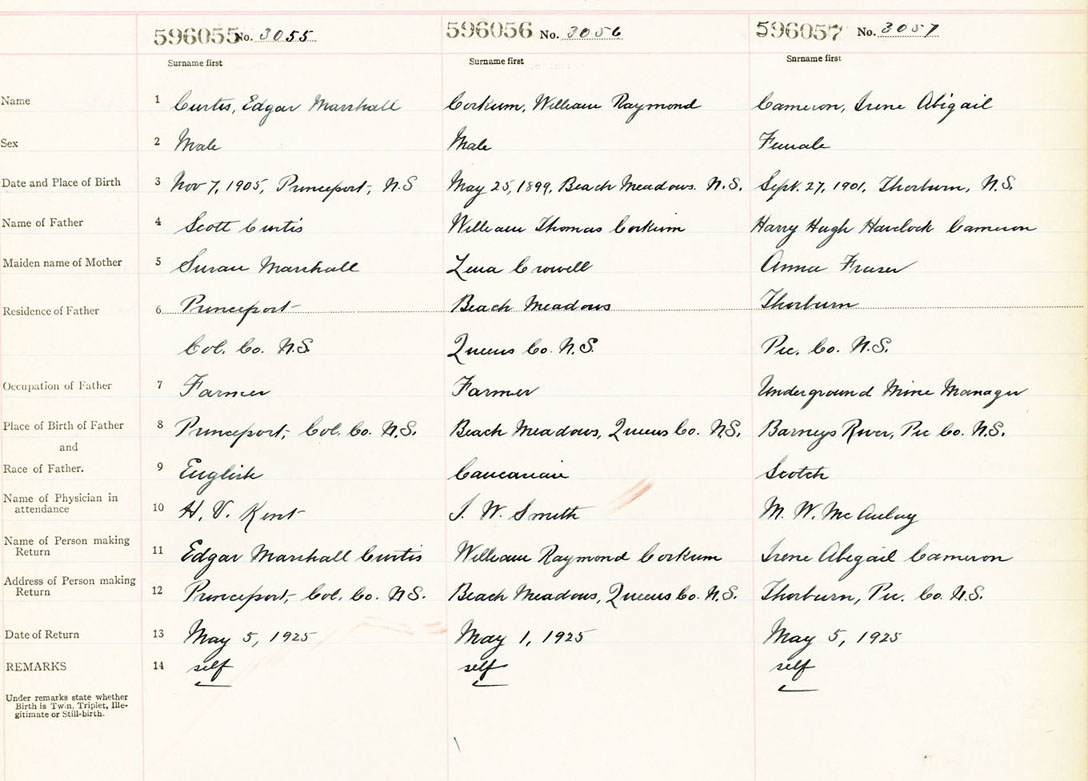 596055 No. 3055 596056 No. 3056 596057 No. 3057
Surname first Surname first Surname first
Name 1 Curtis, Edgar Marshall Corkum, William Raymond Cameron, Irene Abigail
Sex 2 Male Male Female
Date and Place of Birth 3 Nov 7, 1905, Princeport, N.S May 25, 1899, Beach Meadows. N.S. Sept. 27, 1901, Thorburn, N.S.
Name of Father 4 Scott Curtis William Thomas Corkum Harry Hugh Havelock Cameron
Maiden name of Mother 5 Susan Marshall Lena Crowell Anna Fraser
Residence of Father 6 Princeport Beach Meadows Thorburn
Col. Co. N.S. Queens Co. N.S. Pic. Co. N.S.
Occupation of Father 7 Farmer Farmer Underground Mine Manager
Place of Birth of Father 8 Princeport, Col. Co. N.S. Beach Meadows, Queens Co. N.S. Barneys River, Pic Co. N.S.
and
Race of Father. 9 English Caucasian Scotch
Name of Physician in
attendance 10 H. V. Kent J. W. Smith M. W. McAulay
Name of Person making
Return 11 Edgar Marshall Curtis William Raymond Corkum Irene Abigail Cameron
Address of Person making
Return 12 Princeport, Col. Co. N.S. Beach Meadows, Queens Co. N.S. Thorburn, Pic. Co. N.S.
Date of Return 13 May 5, 1925 May 1, 1925 May 5, 1925
REMARKS 14 self self self
Under remarks state whether
Birth is Twin, Triplet, Ille-
gitimate or Still-birth.